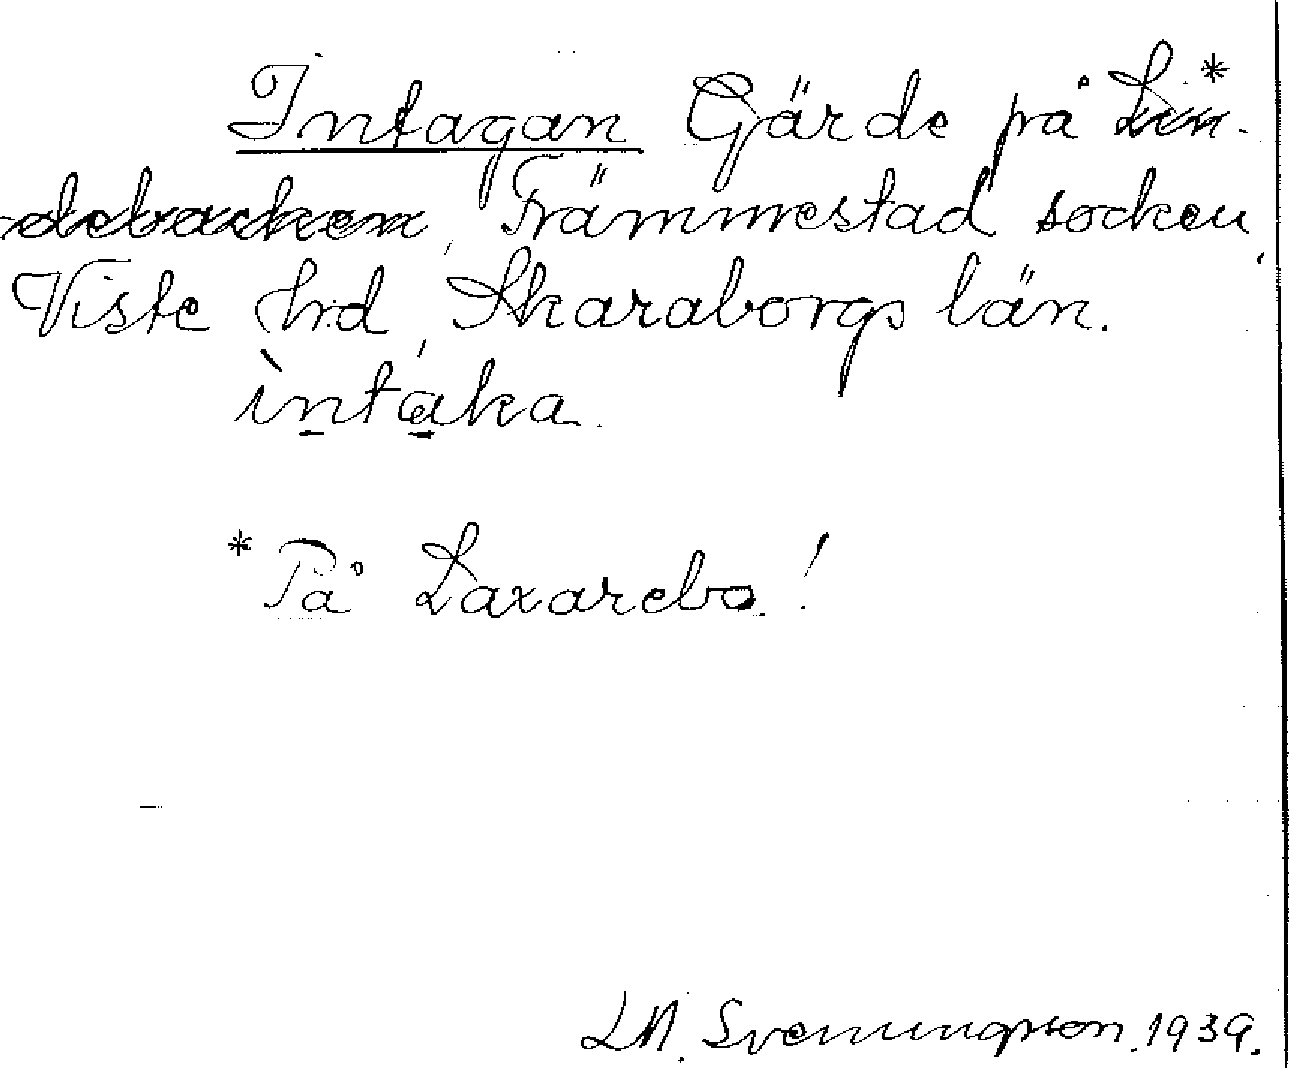 Intagan Gärde på Lin*-
debacken, Främmestad socken,
Viste hd, Skaraborgs län.
ìntáka.
*På Laxarebo!
LM. Svenungsson. 1939.